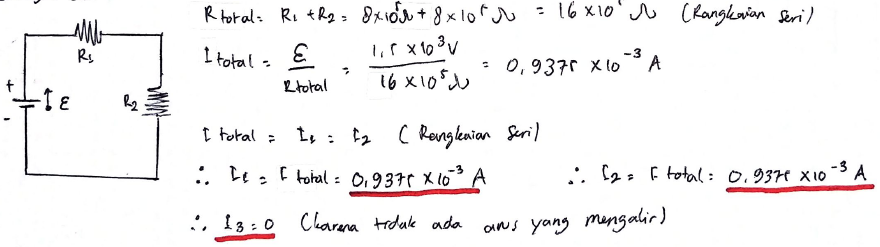 R total = R1 + R2 = 8x10⁵Ω + 8x10⁵Ω = 16x10⁵Ω (Rangkaian Seri)
I total = ε / R total = 1,5 x 10³ V / 16 x 10⁵ Ω = 0,9375 x 10⁻³ A
R1
+ ε R2
-
I total = I1 = I2 (Rangkaian Seri)
∴ I1 = I total = 0,9375 x 10⁻³ A ∴ I2 = I total = 0,9375 x 10⁻³ A
∴ I3 = 0 (karena tidak ada arus yang mengalir)